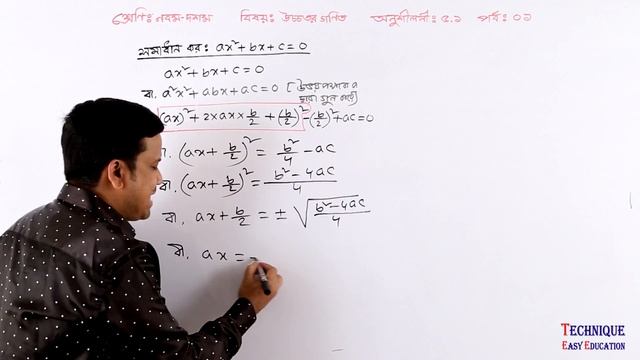 শ্রেণিঃ নবম-দশম বিষয়ঃ উচ্চতর গণিত অনুশীলনীঃ ৫.১ পর্বঃ ০১
সমাধান কর: ax² + bx + c = 0
ax² + bx + c = 0
বা, a²x² + abx + ac = 0 [উভয়পক্ষকে a
দ্বারা গুন করে]
(ax)² + 2×ax×b/2 + (b/2)² - (b/2)² + ac = 0
বা, (ax + b/2)² = b²/4 - ac
বা, (ax + b/2)² = (b² - 4ac)/4
বা, ax + b/2 = ± √((b² - 4ac)/4)
বা, ax = -
TECHNIQUE
EASY EDUCATION